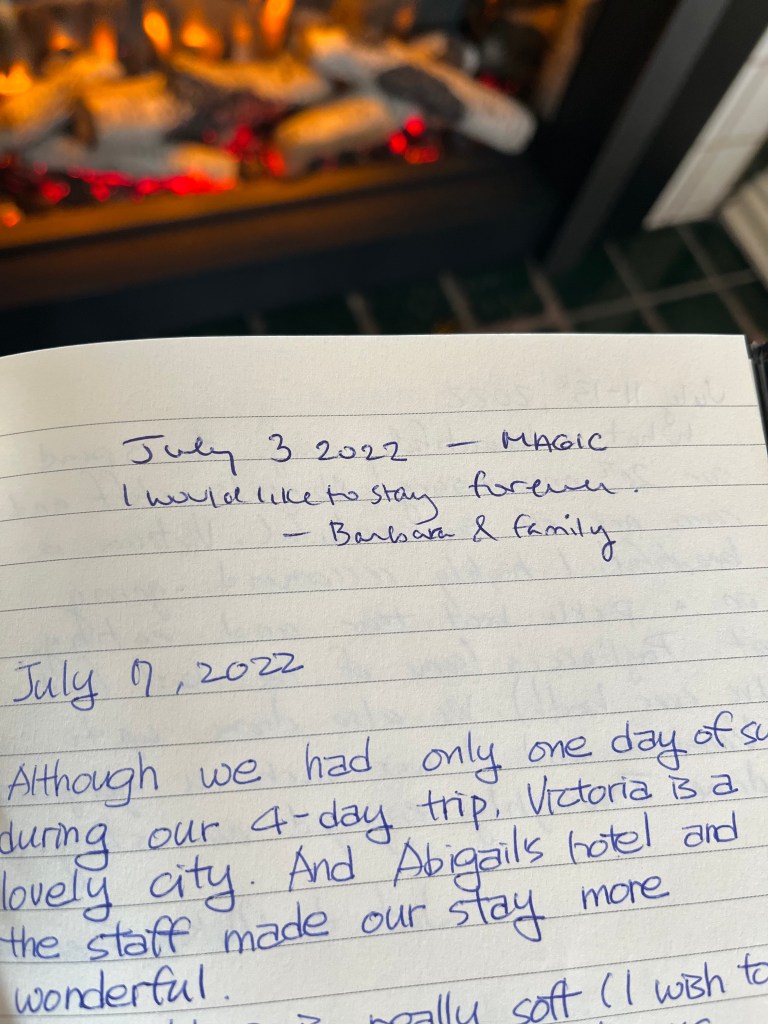 July 3 2022 — MAGIC
I would like to stay forever.
— Barbara & family
July 7, 2022
Although we had only one day of su
during our 4-day trip, Victoria is a
lovely city. And Abigail's hotel and
the staff made our stay more
wonderful.
really soft (I wish to